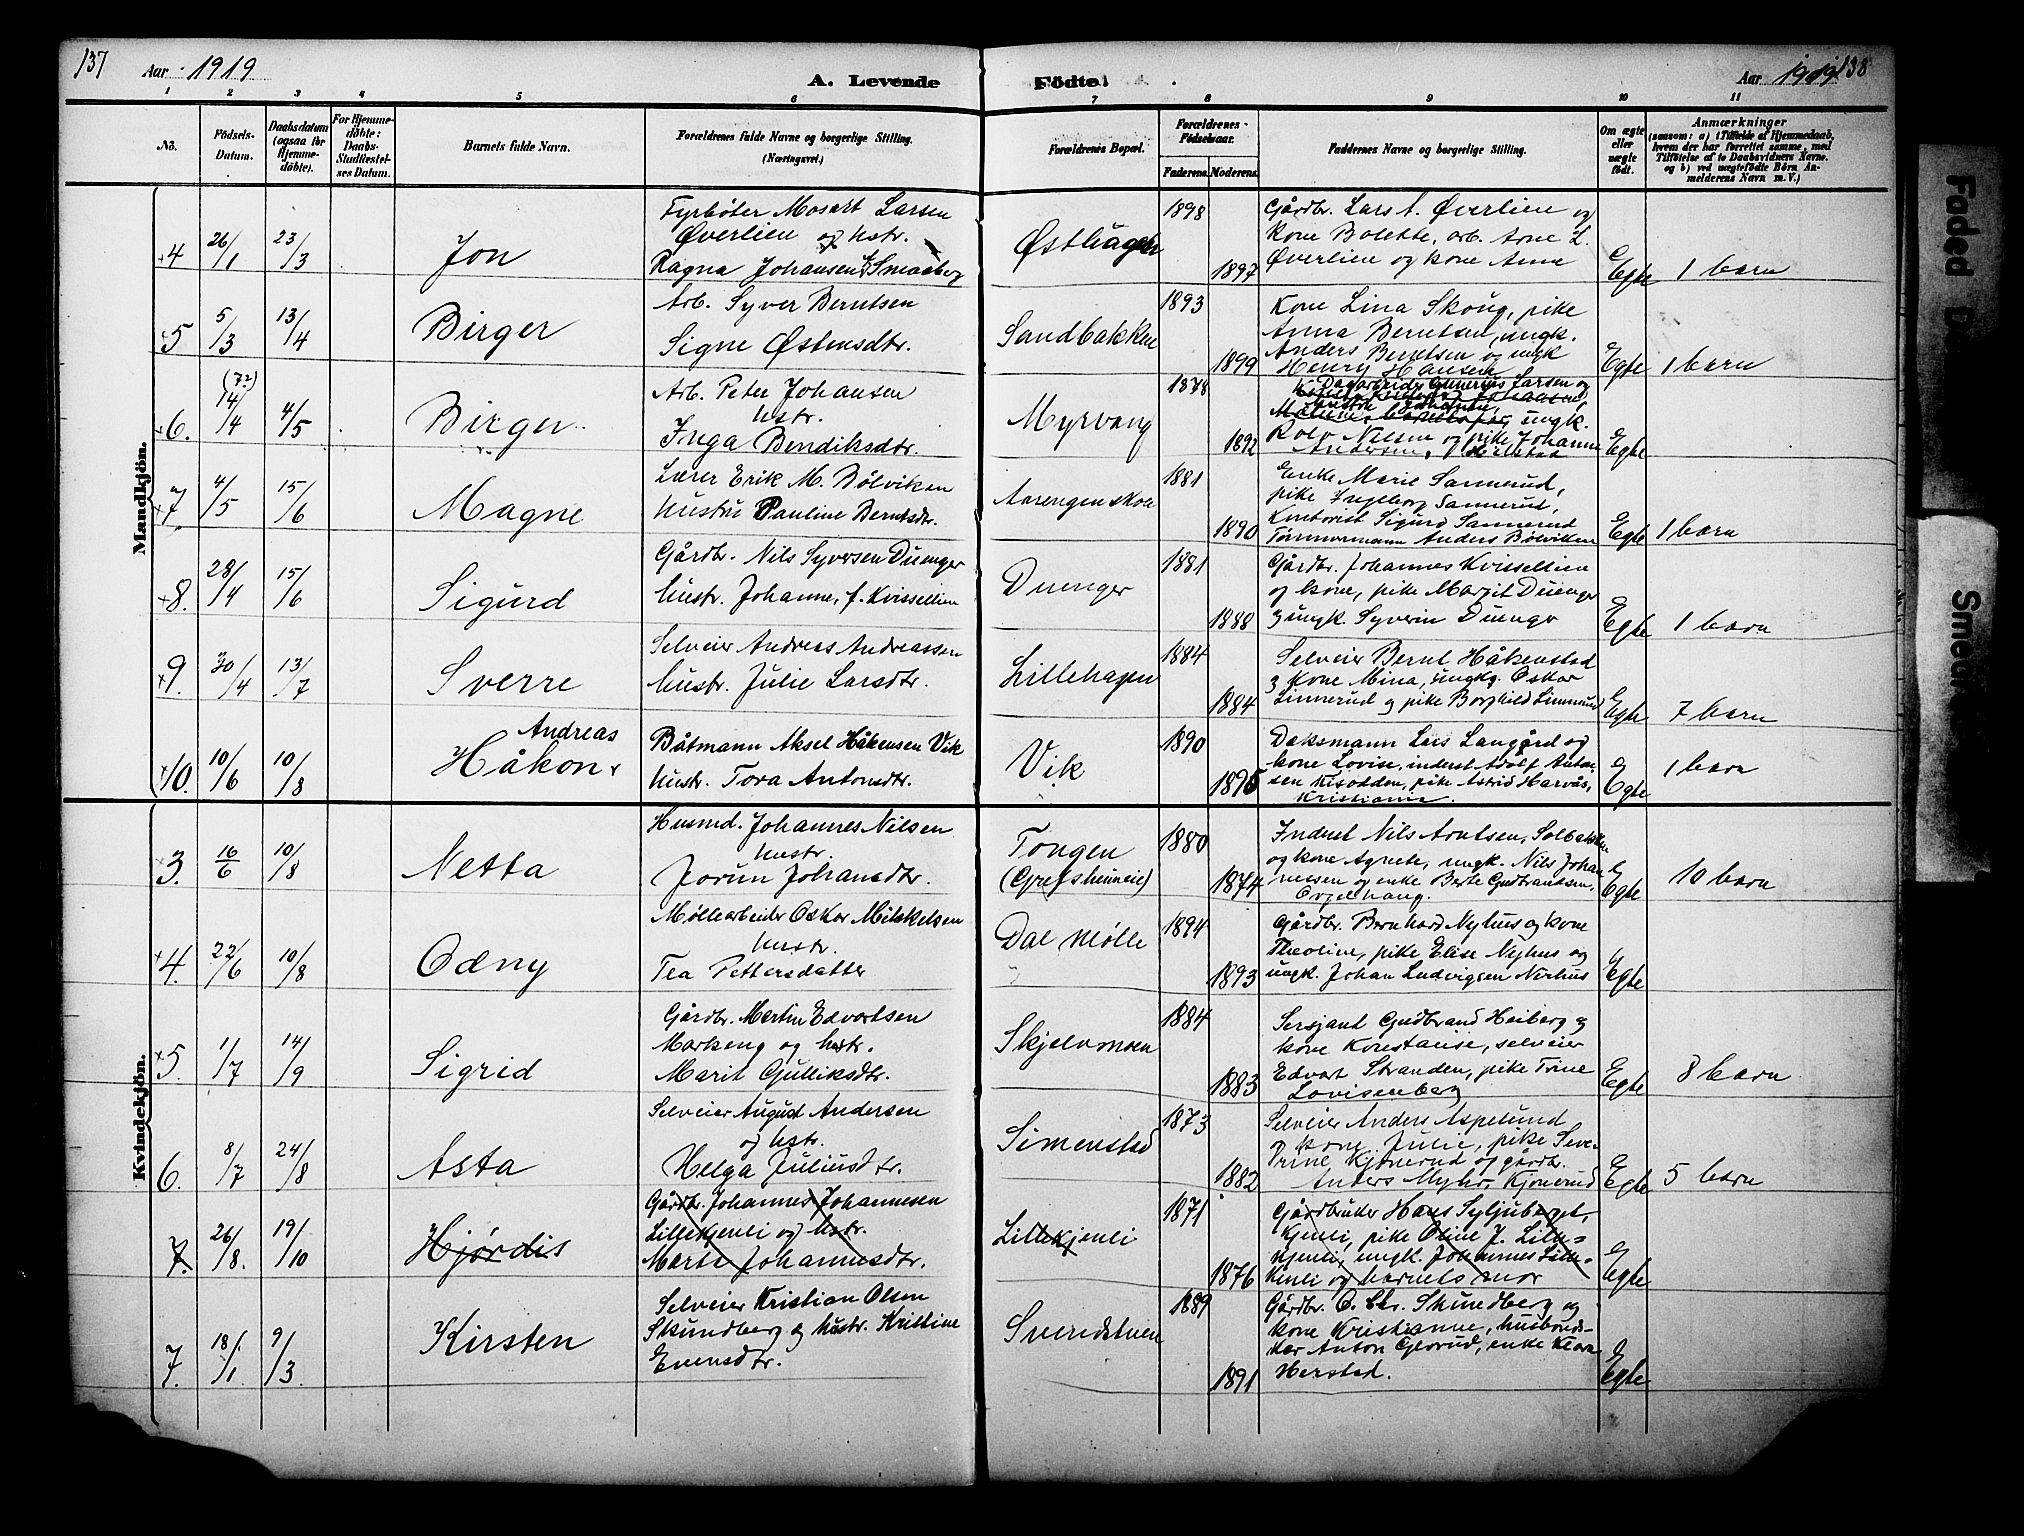 137 Aar 1919 A. Levende Födte. Aar 1919 138
1 2 3 4 5 6 7 8 9 10 11
No.
Födsels-Datum.
Daabsdatum (ogsaa for Hjemme-döbte).
For Hjemme-döbte: Daabs-Stadfæstel-ses Datum.
Barnets fulde Navn.
Forældrenes fulde Navne og borgerlige Stilling.
(Næringsvei.)
Forældrenes Bopæl.
Forældrenes Födselsaar.
Faderens. Moderens.
Faddernes Navne og borgerlige Stilling.
Om ægte eller uægte födt.
Anmærkninger
(saasom: a) i Tilfælde af Hjemmedaab, hvem der har forrettet samme, med Tilföielse af to Daabsvidners Navne. og b) ved uægtefödte Börn An-melderens Navn m. V.)
Mandkjön.
4 26/1 23/3 Jon
Fyrbøter Mosart Larsen
Øverlien og hstr.
Ragna Johansen Smaaberg
Østhagen
1898
1897
Gårdbr. Lars A. Øverlien og
kone Bolette, arb. Arne L.
Øverlien og kone Anne
Egte 1 barn
5 5/3 13/4 Birger
Arb. Syver Berntsen
Signe Østensdtr.
Sandbakken
1893
1899
Kone Lina Skoug, pike
Anna Berntsen, ungk.
Anders Berntsen og ungk
Henry Hansen
Egte 1 barn
6. 14/4 4/5 Birger
Arb. Peter Johansen
hustr.
Inga Bendiksdtr.
Myrvang
1878
1892
Larsen og
ungk.
Rolv Nilsen og pike Johanne
Andersen,
Egte
7. 4/5 15/6 Magne
Lærer Erik M. Bölviken
hustru Pauline Berntsdtr.
Aarengen skole
1881
1890
Enke Marie Sannerud,
pike Ingeborg Sannerud,
Kontorist Sigurd Sannerud
Tømmermann Anders Bölviken
Egte 1 barn
8. 28/4 15/6 Sigurd
Gårdbr. Nils Syversen Duenger
hustr. Johanne, f. Kvissellien
Duenger
1881
1888
Gårdbr. Johannes Kvissellien
og kone, pike Margit Duenger
og ungk. Syverin Duenger
Egte 1 barn
9. 30/4 13/7 Sverre
Selveier Andreas Andreassen
hustr. Julie Larsdtr.
Lillehagen
1884
1884
Selveier Bernt Håkenstad
og kone Mina, ungkg. Oskar
Linnerud og pike Borghild Linnerud
Egte 7 barn
10. 10/6 10/8 Håkon Andreas
Båtmann Aksel Håkensen Vik
hustr. Tora Antonsdtr.
Vik
1890
1895
Daksmann Lars Langård og
kone Lovise, inderst Adolf Anton-
sen Kisodden, pike Astrid Harvås,
Kristiania.
Egte 1 barn
Kvindekjön.
3. 16/6 10/8 Netta
Husmd. Johannes Nilsen
hustr.
Jorun Johansdtr.
Tongen
(Grefsheimeie)
1880
1874
Inderst Nils Arntsen, Solbakken
og kone Agnete, ungk. Nils Johan
nessen og enke Berte Gudbrandsen,
Egte 10 barn
4. 22/6 10/8 Odny
Møllearbeider Oskar Mikkelsen
hustr.
Tea Pettersdatter
Dal Mølle
1894
1893
Gårdbr. Bernhard Nyhus og kone
Theoline, pike Elise Nyhus og
ungk. Johan Ludvigsen Nerhus
Egte
5. 1/7 14/9 Sigrid
Gårdbr. Martin Edvartsen
Markeng og hstr.
Marit Gulliksdtr.
Skjelvmoen
1884
1883
Sersjant Gudbrand Heiberg og
kone Konstanse, selveier
Edvart Stranden, pike Trine
Lovisenberg
Egte 8 barn
6. 8/7 24/8 Asta
Selveier August Andersen
og hstr.
Helga Juliusdtr.
Simenstad
1873
1882
Selveier Anders Aspelund
og kone Julie, pike Seve-
rine Kjonerud og gårdbr.
Anders Myhr, Kjonerud
Egte 5 barn
7. 26/8. 19/10 Hjørdis
Gårdbr. Johannes Johannesen
Lillekjenli og hstr.
Marte Johannesdtr.
Lillekjenli
1871
1876
Gårdbruker Hans Syljuberget,
Kjenli, pike Oline J. Lille-
kjenli, ungk. Johannes Lille-
kenli og barnets mor
Egte
7. 18/1 9/3 Kirsten
Selveier Kristian Olsen
Skundberg og hustr. Kristine
Evensdtr.
Sveredstuen
1889
1891
Gårdbr. O. Chr. Skundberg og
kone Kristianne, husbonds-
kar Anton Glorud, enke Klara
Herstad.
Egte
Faded